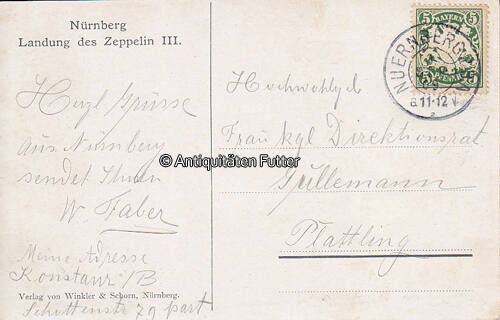 Nürnberg
Landung des Zeppelin III.
Hzgl Grüsse
aus Nürnberg
sendet Ihnen
W. Faber
Meine Adresse
Konstanz /B
Verlag von Winkler & Schorn, Nürnberg.
Schottenstr 79 part
5 BAYERN 5
5 PFENNIG 5
NUERNBERG
11-12 V
2
Hochwohlgeb
Frau kgl Direktionsrat
Güllemann
Plattling
© Antiquitäten Futter